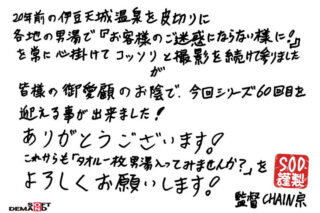 20年前の伊豆天城温泉を皮切りに
各地の男湯で『お客様のご迷惑にならない様に!』
を常に心掛けてコッソリと撮影を続けて参りました
が
皆様の御愛顧のお陰で、今回シリーズ60回目を
迎える事が出来ました!
ありがとうございます!
これからも「タオル一枚男湯入ってみませんか?」を
よろしくお願いします!
S.O.D.
謹製
監督CHAIN泉